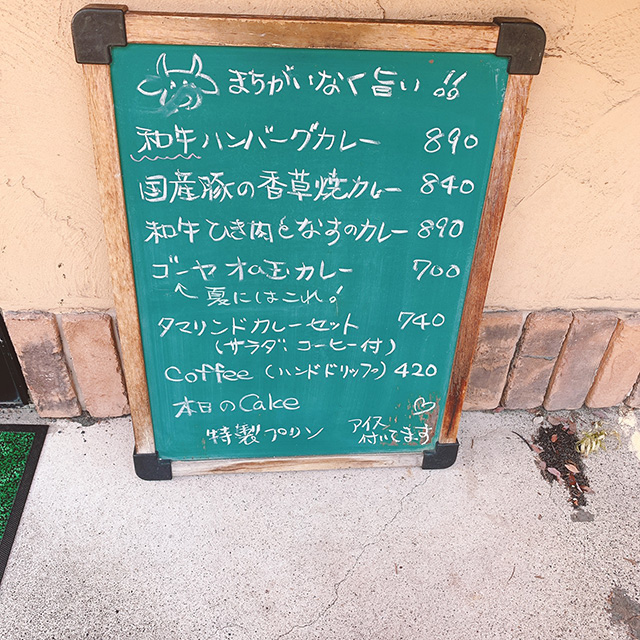 まちがいなく旨い!!
和牛ハンバーグカレー 890
国産豚の香草焼カレー 840
和牛ひき肉となすのカレー 890
ゴーヤ オム玉カレー 700
夏にはこれ!
タマリンドカレーセット 740
(サラダ:コーヒー付)
Coffee(ハンドドリップ) 420
本日のCake
特製プリン アイス
付いてます